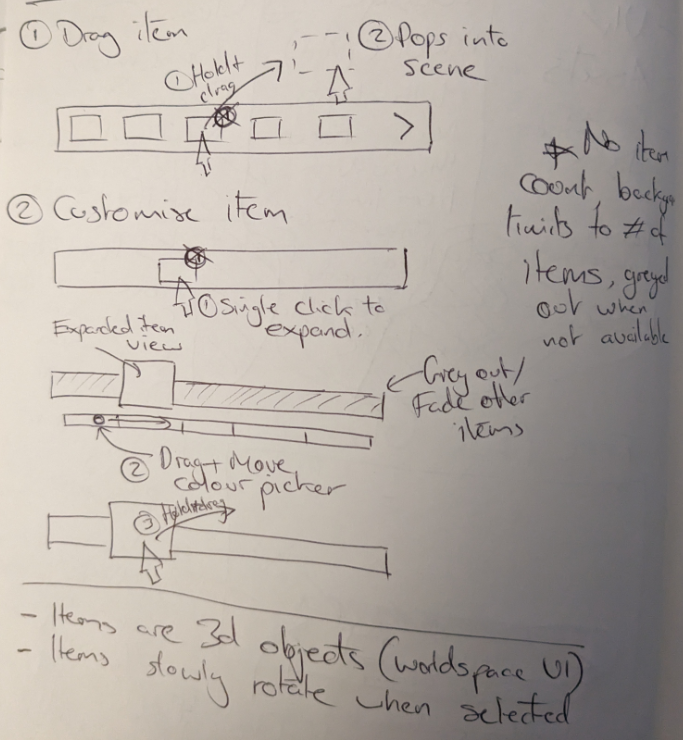 ① Drag item
① Hold +
drag
② Pops into
scene
>
* No item
count,
limits to # of
items, greyed
out when
not available
② Customise item
① Single click to
expand.
Expanded item
view
Grey out/
Fade other
items
② Drag + Move
colour picker
③ Hold + drag
- Items are 3d objects (worldspace UI)
- Items slowly rotate when selected